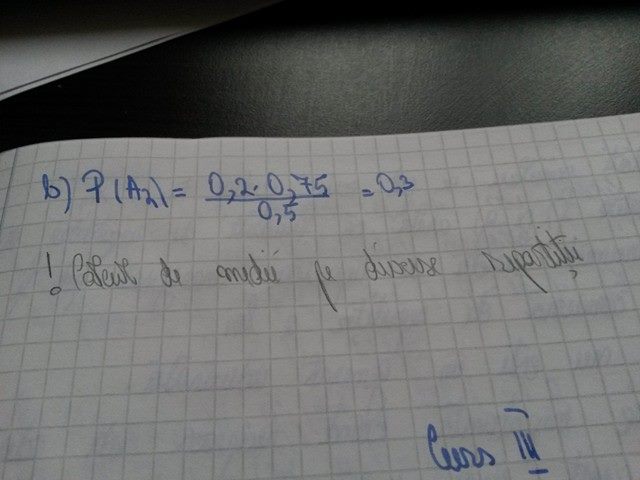 b) P(A₂) = 0,2 · 0,75 / 0,5 = 0,3
! Calcul de medii pe diverse repartiții
Curs III